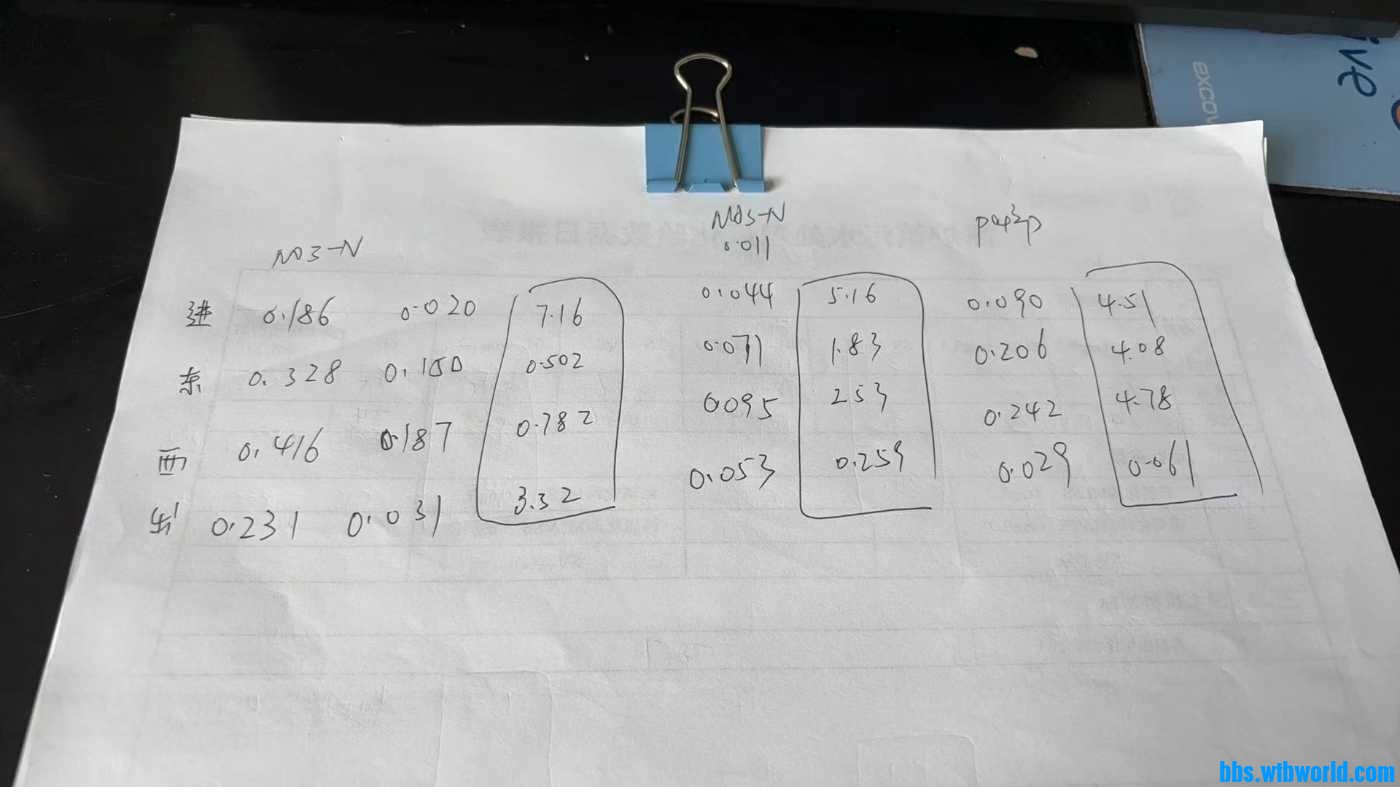 NO3-N NO3-N PO4³P
0.011
进 0.186 0.020 7.16 0.044 5.16 0.090 4.51
东 0.328 0.100 0.502 0.071 1.83 0.206 4.08
西 0.416 0.187 0.782 0.095 2.53 0.242 4.78
0.231 0.031 3.32 0.053 0.259 0.029 0.061
bbs.wibworld.com